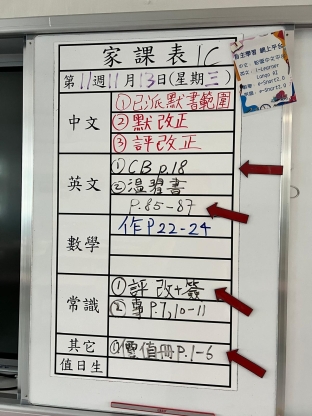 家課表 1C
第11週11月13日(星期三)
中文
①已派默書範圍
②默改正
③評改正
英文
①CB p.18
②温習書
P.85-87
數學
作P22-24
常識
①評改+簽
②專P.7,10-11
其它
①價值冊P.1-6
值日生
自主學習 網上平台